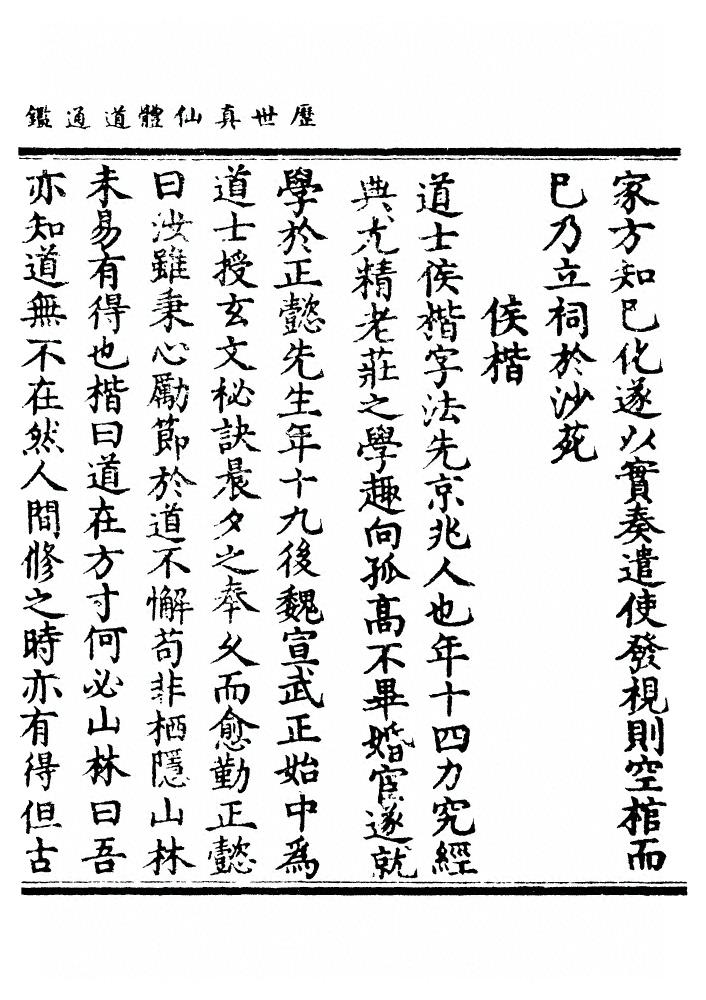 歷世真仙體道通鑑
家方知已化遂以實奏遣使發視則空棺而
已乃立祠於沙苑
侯楷
道士侯楷字法先京兆人也年十四力究經
典尤精老莊之學趣向孤高不畢婚宦遂就
學於正懿先生年十九後魏宣武正始中為
道士授玄文秘訣晨夕之奉久而愈勤正懿
曰汝雖秉心勵節於道不懈苟非栖隱山林
未易有得也楷曰道在方寸何必山林曰吾
亦知道無不在然人間修之時亦有得但古